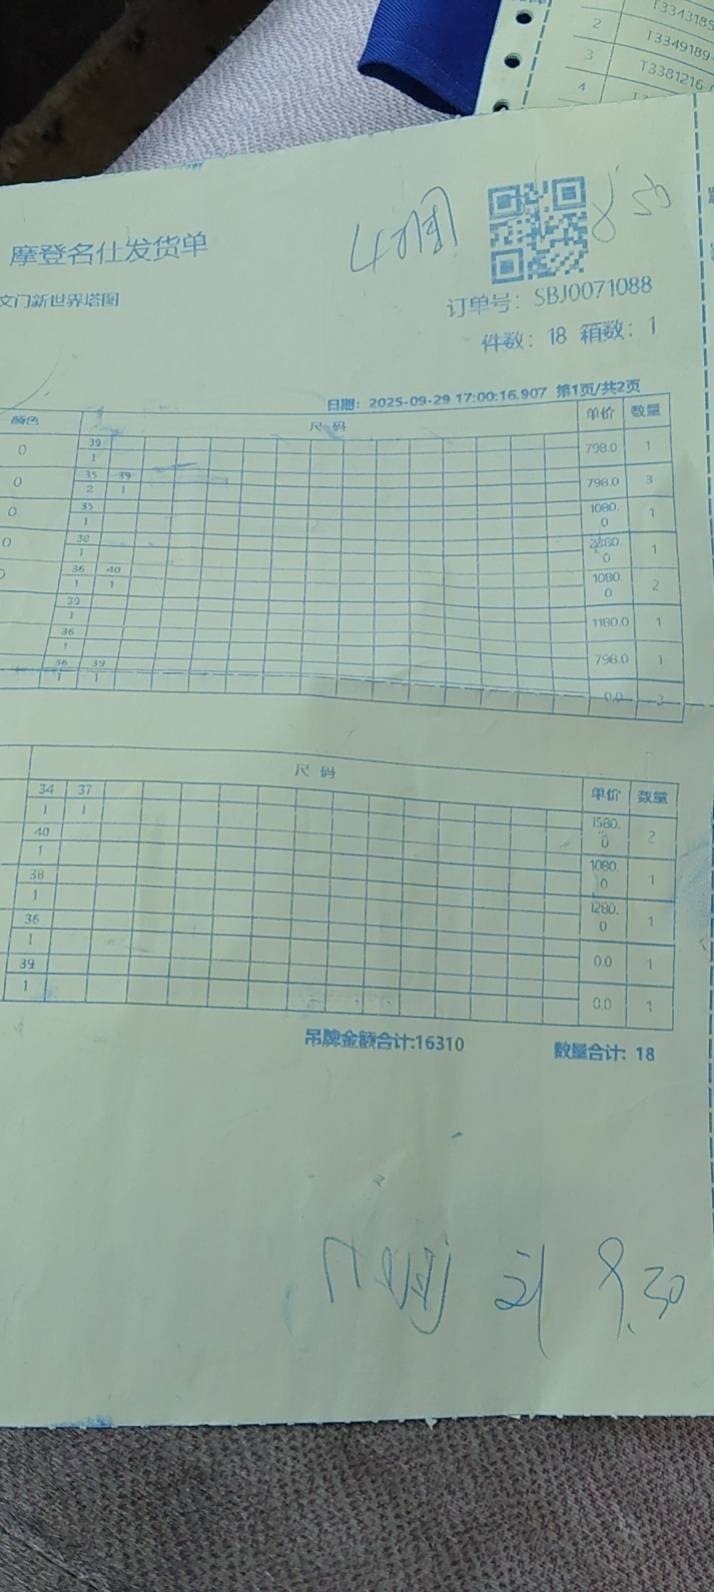 T3343185
2 T3349189
3 T3381216
4
摩登名仕发货单
文门新世界塔图
订单号: SBJ0071088
件数: 18 箱数: 1
日期: 2025-09-29 17:00:16.907 第1页/共2页
颜色 尺码 单价 数量
0 39 798.0 1
1
0 35 39 798.0 3
2 1
0 35 1080.0 1
1
0 38 2880.0 1
1
36 40 1080.0 2
1 1
39 1180.0 1
1
36 798.0 1
1
36 39 0.0 2
1 1
尺码 单价 数量
34 37 1580.0 2
1 1
40 1080.0 1
1
38 1280.0 1
1
36 0.0 1
1
39 0.0 1
1
吊牌金额合计:16310 数量合计: 18
9.30